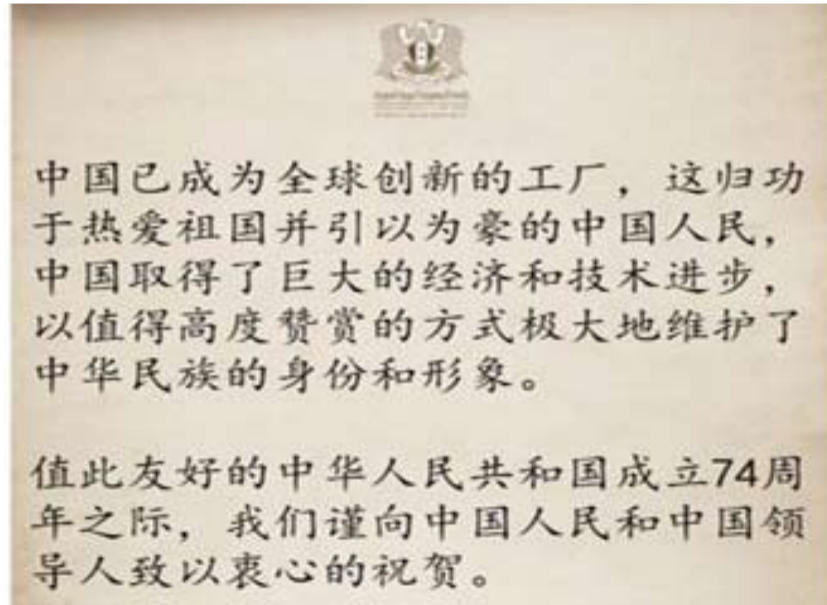 中国已成为全球创新的工厂，这归功
于热爱祖国并引以为豪的中国人民，
中国取得了巨大的经济和技术进步，
以值得高度赞赏的方式极大地维护了
中华民族的身份和形象。
值此友好的中华人民共和国成立74周
年之际，我们谨向中国人民和中国领
导人致以衷心的祝贺。